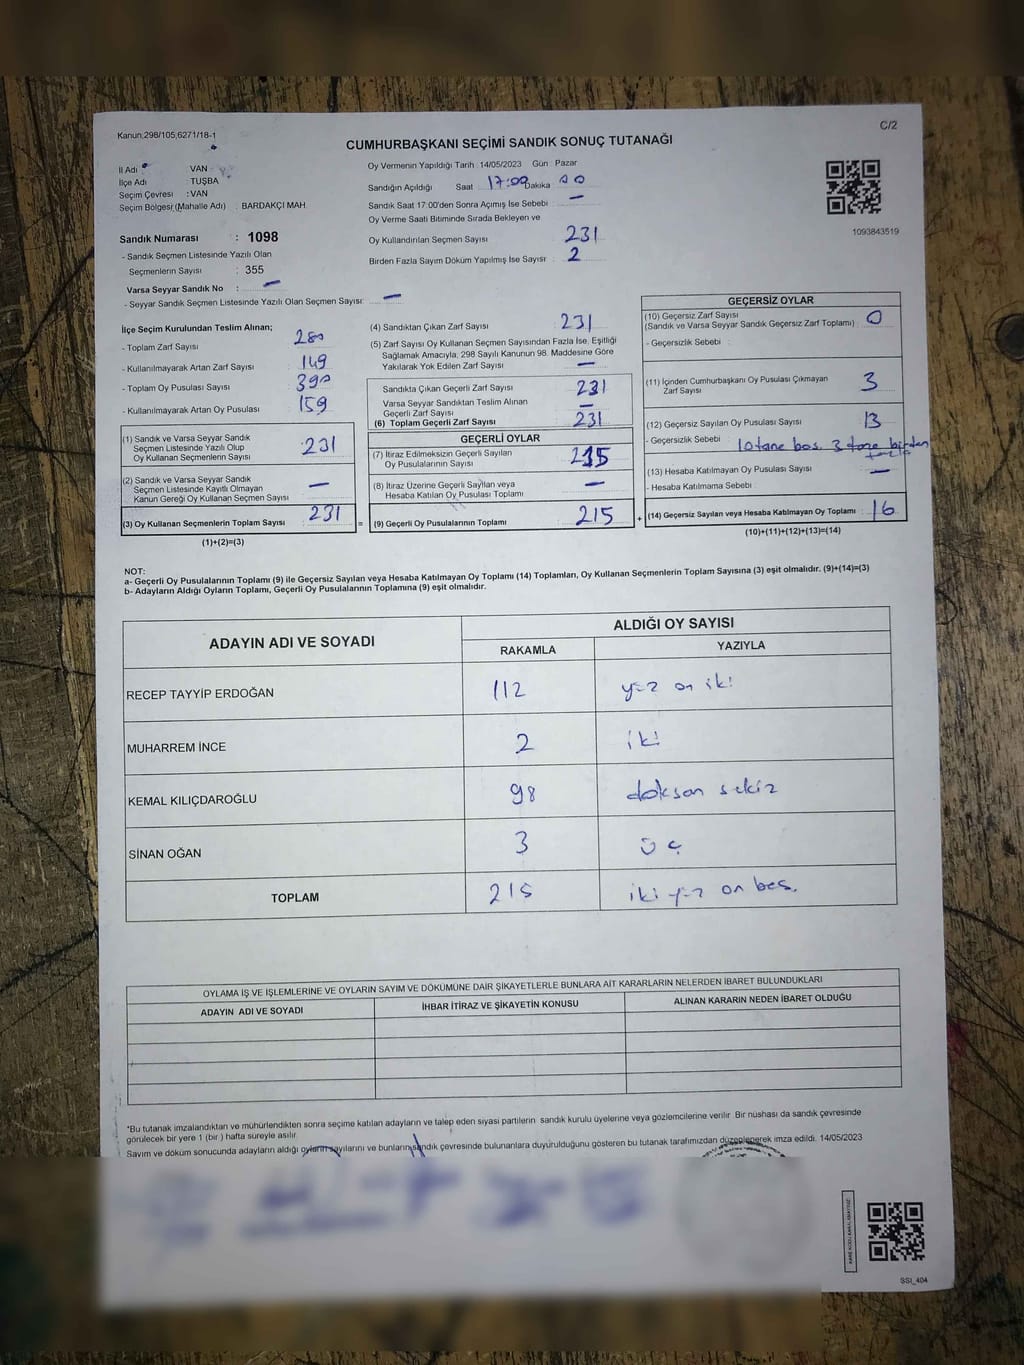 Kanun:298/105,6271/18-1
C/2
CUMHURBAŞKANI SEÇİMİ SANDIK SONUÇ TUTANAĞI
İl Adı : VAN
İlçe Adı : TUŞBA
Seçim Çevresi : VAN
Seçim Bölgesi (Mahalle Adı) : BARDAKÇI MAH.
Sandık Numarası : 1098
- Sandık Seçmen Listesinde Yazılı Olan
Seçmenlerin Sayısı : 355
Varsa Seyyar Sandık No : —
- Seyyar Sandık Seçmen Listesinde Yazılı Olan Seçmen Sayısı: —
Oy Vermenin Yapıldığı Tarih : 14/05/2023 Gün : Pazar
Sandığın Açıldığı Saat 17:00 Dakika 00
Sandık Saat 17:00'den Sonra Açımış İse Sebebi : —
Oy Verme Saati Bitiminde Sırada Bekleyen ve
Oy Kullandırılan Seçmen Sayısı 231
Birden Fazla Sayım Döküm Yapılmış İse Sayısı : 2
1093843519
İlçe Seçim Kurulundan Teslim Alınan;
- Toplam Zarf Sayısı : 380
- Kullanılmayarak Artan Zarf Sayısı : 149
- Toplam Oy Pusulası Sayısı : 390
- Kullanılmayarak Artan Oy Pusulası : 159
(1) Sandık ve Varsa Seyyar Sandık
Seçmen Listesinde Yazılı Olup
Oy Kullanan Seçmenlerin Sayısı 231
(2) Sandık ve Varsa Seyyar Sandık
Seçmen Listesinde Kayıtlı Olmayan
Kanun Gereği Oy Kullanan Seçmen Sayısı —
(3) Oy Kullanan Seçmenlerin Toplam Sayısı 231
(1)+(2)=(3)
(4) Sandıktan Çıkan Zarf Sayısı : 231
(5) Zarf Sayısı Oy Kullanan Seçmen Sayısından Fazla İse, Eşitliği
Sağlamak Amacıyla, 298 Sayılı Kanunun 98. Maddesine Göre
Yakılarak Yok Edilen Zarf Sayısı : —
Sandıkta Çıkan Geçerli Zarf Sayısı : 231
Varsa Seyyar Sandıktan Teslim Alınan
Geçerli Zarf Sayısı : —
(6) Toplam Geçerli Zarf Sayısı : 231
GEÇERLİ OYLAR
(7) İtiraz Edilmeksizin Geçerli Sayılan
Oy Pusulalarının Sayısı : 215
(8) İtiraz Üzerine Geçerli Sayılan veya
Hesaba Katılan Oy Pusulası Toplamı : —
= (9) Geçerli Oy Pusulalarının Toplamı : 215
GEÇERSİZ OYLAR
(10) Geçersiz Zarf Sayısı
(Sandık ve Varsa Seyyar Sandık Geçersiz Zarf Toplamı) : 0
- Geçersizlik Sebebi :
(11) İçinden Cumhurbaşkanı Oy Pusulası Çıkmayan
Zarf Sayısı : 3
(12) Geçersiz Sayılan Oy Pusulası Sayısı : 13
- Geçersizlik Sebebi : 10 tane boş. 3 tane birden
fazla
(13) Hesaba Katılmayan Oy Pusulası Sayısı : —
- Hesaba Katılmama Sebebi :
+ (14) Geçersiz Sayılan veya Hesaba Katılmayan Oy Toplamı : 16
(10)+(11)+(12)+(13)=(14)
NOT:
a- Geçerli Oy Pusulalarının Toplamı (9) ile Geçersiz Sayılan veya Hesaba Katılmayan Oy Toplamı (14) Toplamları, Oy Kullanan Seçmenlerin Toplam Sayısına (3) eşit olmalıdır. (9)+(14)=(3)
b- Adayların Aldığı Oyların Toplamı, Geçerli Oy Pusulalarının Toplamına (9) eşit olmalıdır.
ADAYIN ADI VE SOYADI
ALDIĞI OY SAYISI
RAKAMLA YAZIYLA
RECEP TAYYİP ERDOĞAN 112 yüz on iki
MUHARREM İNCE 2 iki
KEMAL KILIÇDAROĞLU 98 doksan sekiz
SİNAN OĞAN 3 üç
TOPLAM 215 iki yüz on beş.
OYLAMA İŞ VE İŞLEMLERİNE VE OYLARIN SAYIM VE DÖKÜMÜNE DAİR ŞİKAYETLERLE BUNLARA AİT KARARLARIN NELERDEN İBARET BULUNDUKLARI
ADAYIN ADI VE SOYADI İHBAR İTİRAZ VE ŞİKAYETİN KONUSU ALINAN KARARIN NEDEN İBARET OLDUĞU
*Bu tutanak imzalandıktan ve mühürlendikten sonra seçime katılan adayların ve talep eden siyasi partilerin sandık kurulu üyelerine veya gözlemcilerine verilir. Bir nüshası da sandık çevresinde
görülecek bir yere 1 (bir) hafta süreyle asılır.
Sayım ve döküm sonucunda adayların aldığı oyların sayılarını ve bunların sandık çevresinde bulunanlara duyurulduğunu gösteren bu tutanak tarafımızdan düzenlenerek imza edildi. 14/05/2023
SSI_404